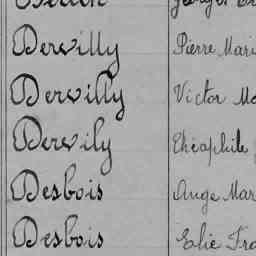 Dervilly Pierre Mari
Dervilly Victor Ma
Dervily Théophile
Desbois Ange Mar
Desbois Elie Fra